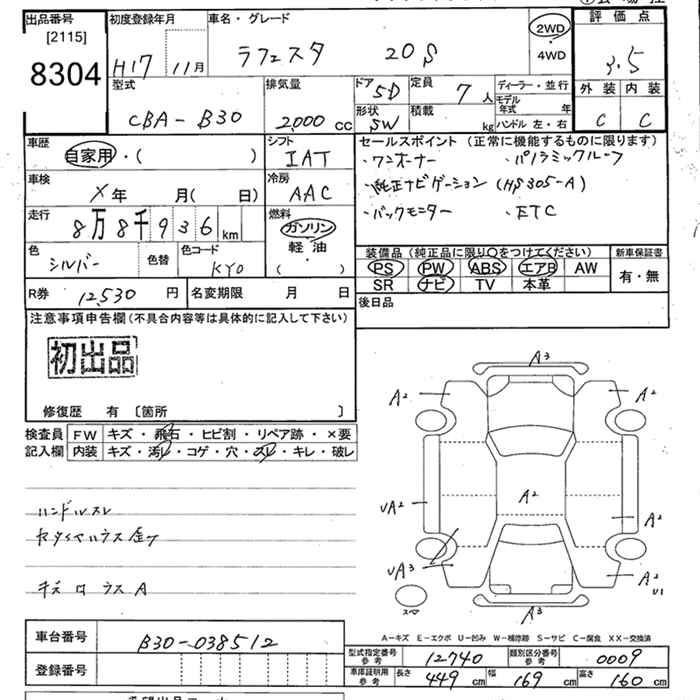 出品番号
[2115]
8304
初度登録年月
H17 11月
車名・グレード
ラフェスタ 20S
2WD
・
4WD
評価点
3.5
外装 内装
C C
型式
CBA-B30
排気量
2,000 cc
ドア 5D
定員 7人
形状 SW
積載 kg
ディーラー・並行
モデル年式 年
ハンドル 左・右
車歴
自家用・( )
シフト
IAT
冷房
AAC
燃料
ガソリン
軽油
( ・ )
車検
X年 月( 日)
走行
8万8千936 km
色
シルバー
色替
色コード
KY0
セールスポイント (正常に機能するものに限ります)
・ワンオーナー ・パノラミックルーフ
・純正ナビゲーション (HS305-A)
・バックモニター ・ETC
装備品 (純正品に限り○をつけてください)
PS PW ABS エアB AW
SR ナビ TV 本革
新車保証書
有・無
R券 12,530 円
名変期限 月 日
後日品
注意事項申告欄(不具合内容等は具体的に記入して下さい)
初出品
修復歴 有 〔箇所 〕
検査員
記入欄
FW キズ・飛石・ヒビ割・リペア跡・×要
内装 キズ・汚レ・コゲ・穴・スレ・キレ・破レ
ハンドルスレ
キズ
A3
A2 A2
A2
UA2 A2
UA3 A2
U1
A3
スペア
A-キズ E-エクボ U-凹み W-補修跡 S-サビ C-腐食 XX-交換済
車台番号
B30-038512
登録番号
型式指定番号 参考 12740
類別区分番号 参考 0009
車庫証明用 参考 長さ 449 cm 幅 169 cm 高さ 160 cm